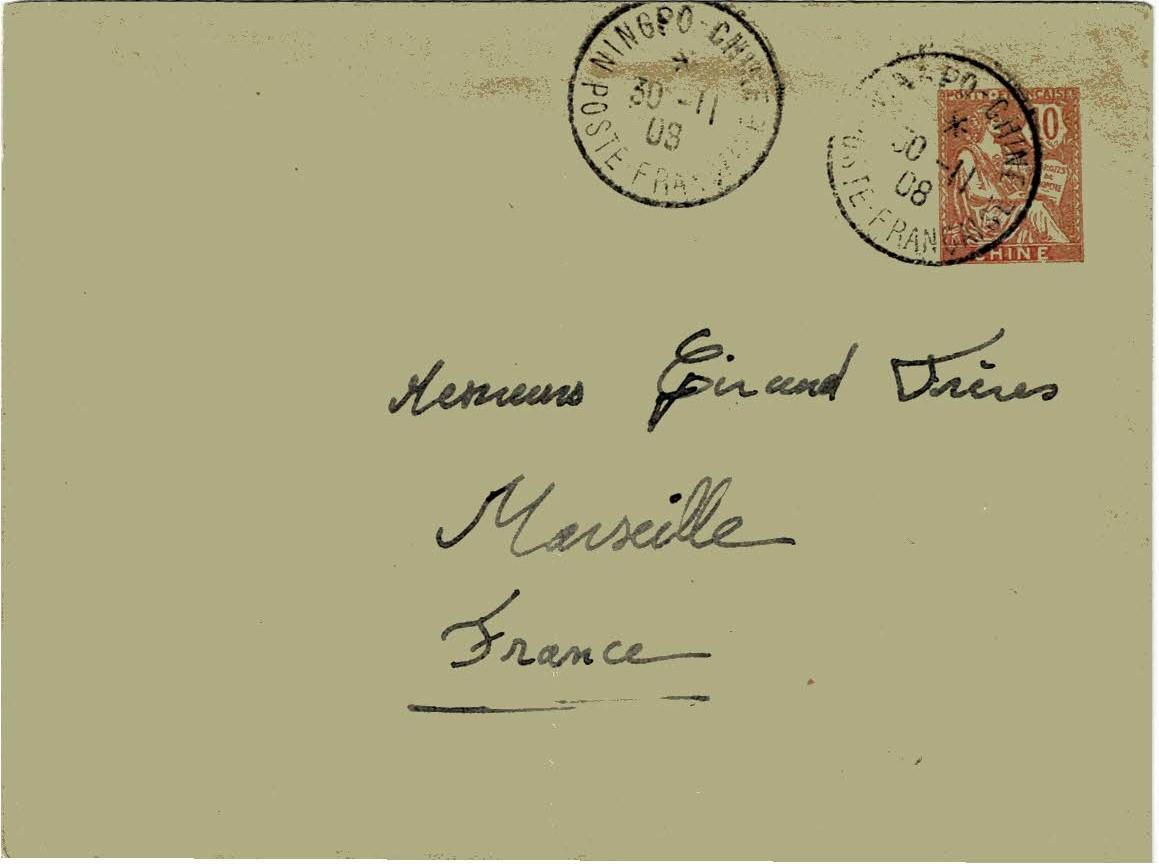 NINGPO-CHINE
*
30 -11
08
POSTE FRANÇAISE
NINGPO-CHINE
*
30 -11
08
POSTE-FRANÇAISE
POSTE FRANÇAISE
10
DROITS
DE
L'HOMME
CHINE
Messieurs Giraud Frères
Marseille
France